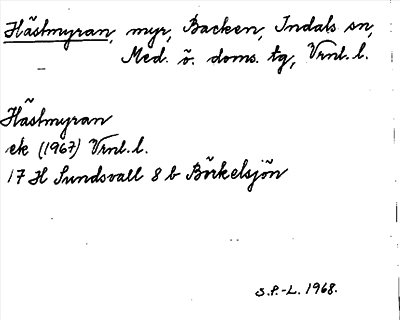 Hästmyran, myr, Backen, Indals sn,
Med. ö. doms. tg, Vrnl. l.
Hästmyran
ek (1967) Vrnl. l.
17 H Sundsvall 8 b Börkelsjön
S.P.-L. 1968.